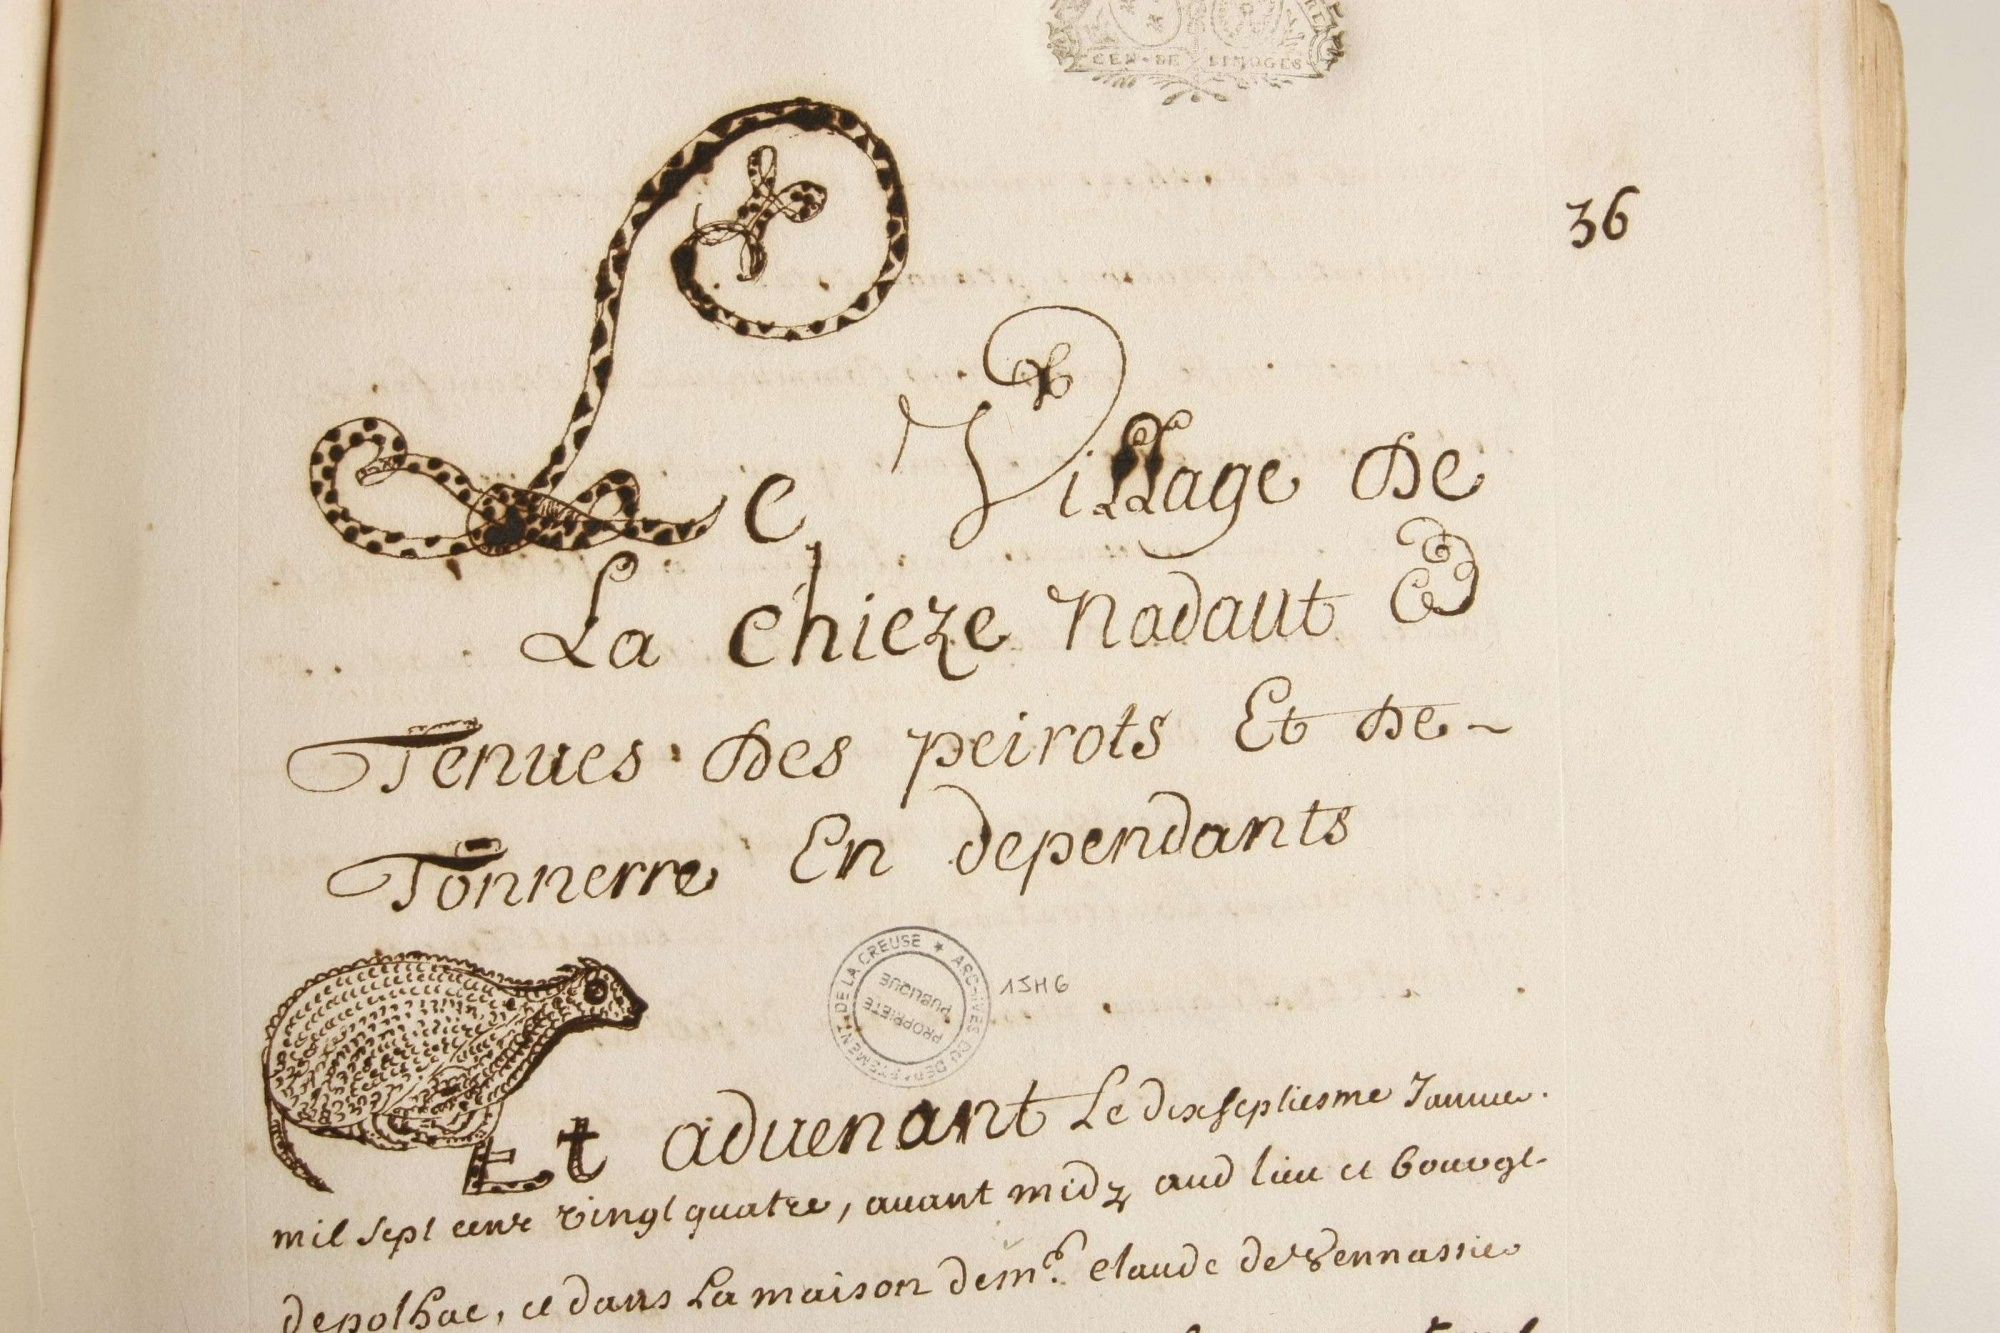 GEN·DE LIMOGES
36
Le Village De
La chieze nadaut &
Tenues Des peirots Et De ~
Tonnerre En dependants
ARCHIVES DU DEPARTEMENT DE LA CREUSE ★
PROPRIETE PUBLIQUE
1SH6
Et aduenant Le dixseptiesme Januier
mil sept cent vingt quatre, auant midy aud lieu et bourg
depolhac, et dans La maison de m.e claude de